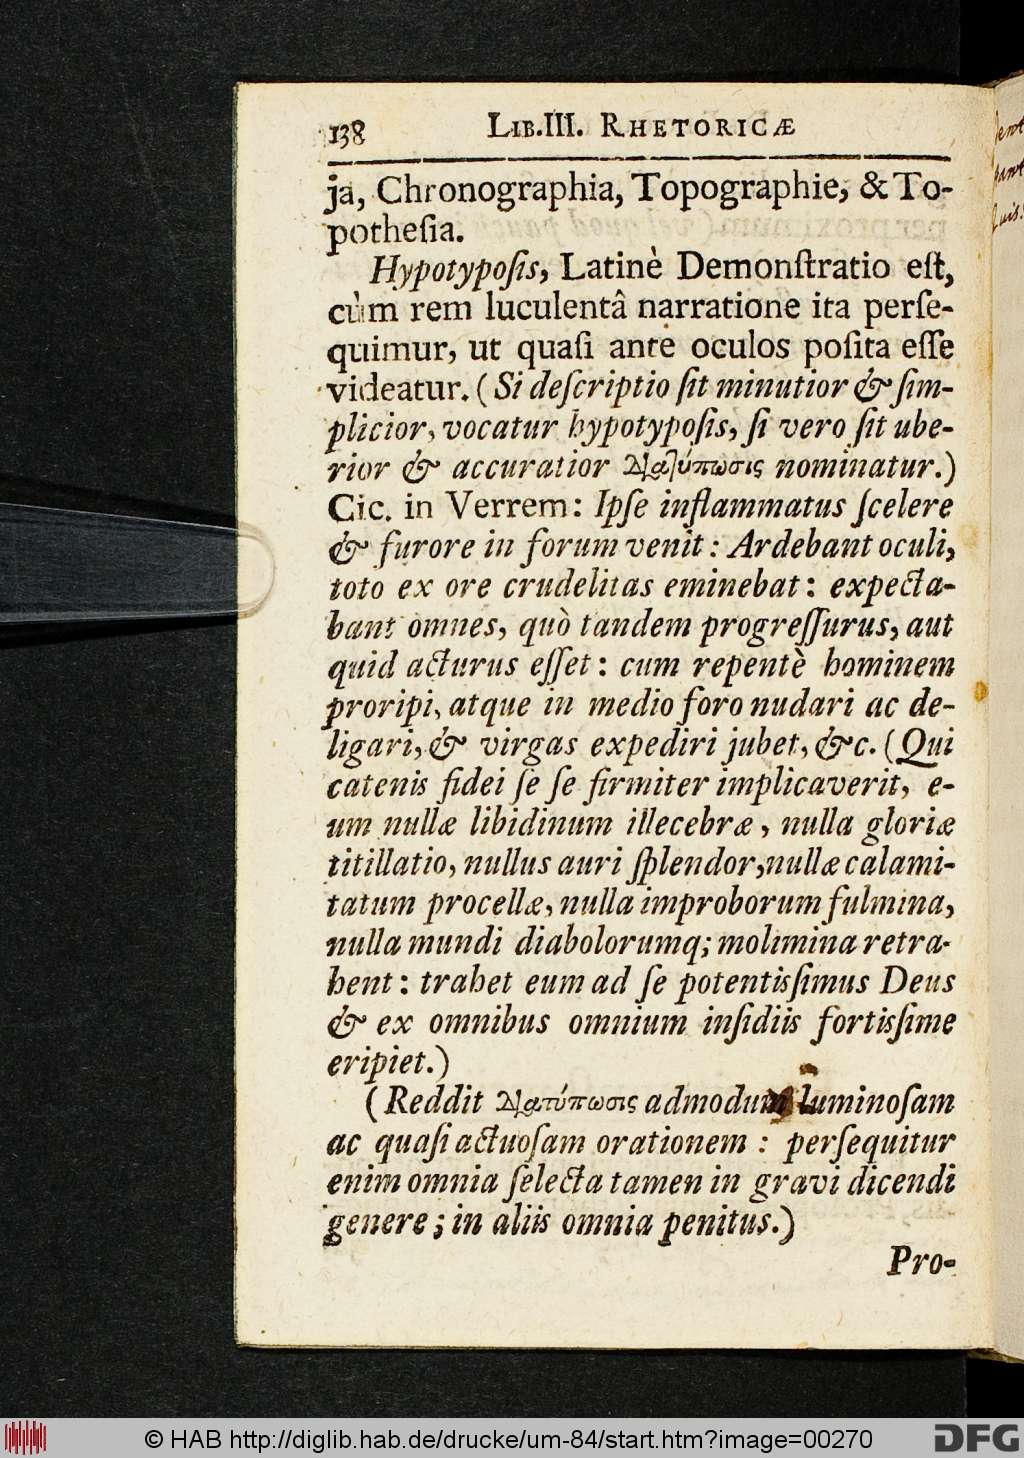 138 LIB.III. RHETORICÆ
ja, Chronographia, Topographie, & To-
potheſia.
Hypotypoſis, Latinè Demonſtratio eſt,
cùm rem luculentâ narratione ita perſe-
quimur, ut quaſi ante oculos poſita eſſe
videatur. (Si deſcriptio ſit minutior & ſim-
plicior, vocatur hypotypoſis, ſi vero ſit ube-
rior & accuratior Διατύπωσις nominatur.)
Cic. in Verrem: Ipſe inflammatus ſcelere
& furore in forum venit: Ardebant oculi,
toto ex ore crudelitas eminebat: expecta-
bant omnes, quò tandem progreſſurus, aut
quid acturus eſſet: cum repentè hominem
proripi, atque in medio foro nudari ac de-
ligari, & virgas expediri jubet, &c. (Qui
catenis fidei ſe ſe firmiter implicaverit, e-
um nullæ libidinum illecebræ, nulla gloriæ
titillatio, nullus auri ſplendor, nullæ calami-
tatum procellæ, nulla improborum fulmina,
nulla mundi diabolorumq; molimina retra-
hent: trahet eum ad ſe potentisſimus Deus
& ex omnibus omnium inſidiis fortisſime
eripiet.)
(Reddit Διατύπωσις admodum luminoſam
ac quaſi actuoſam orationem: perſequitur
enim omnia ſelecta tamen in gravi dicendi
genere; in aliis omnia penitus.)
Pro-
© HAB http://diglib.hab.de/drucke/um-84/start.htm?image=00270
DFG